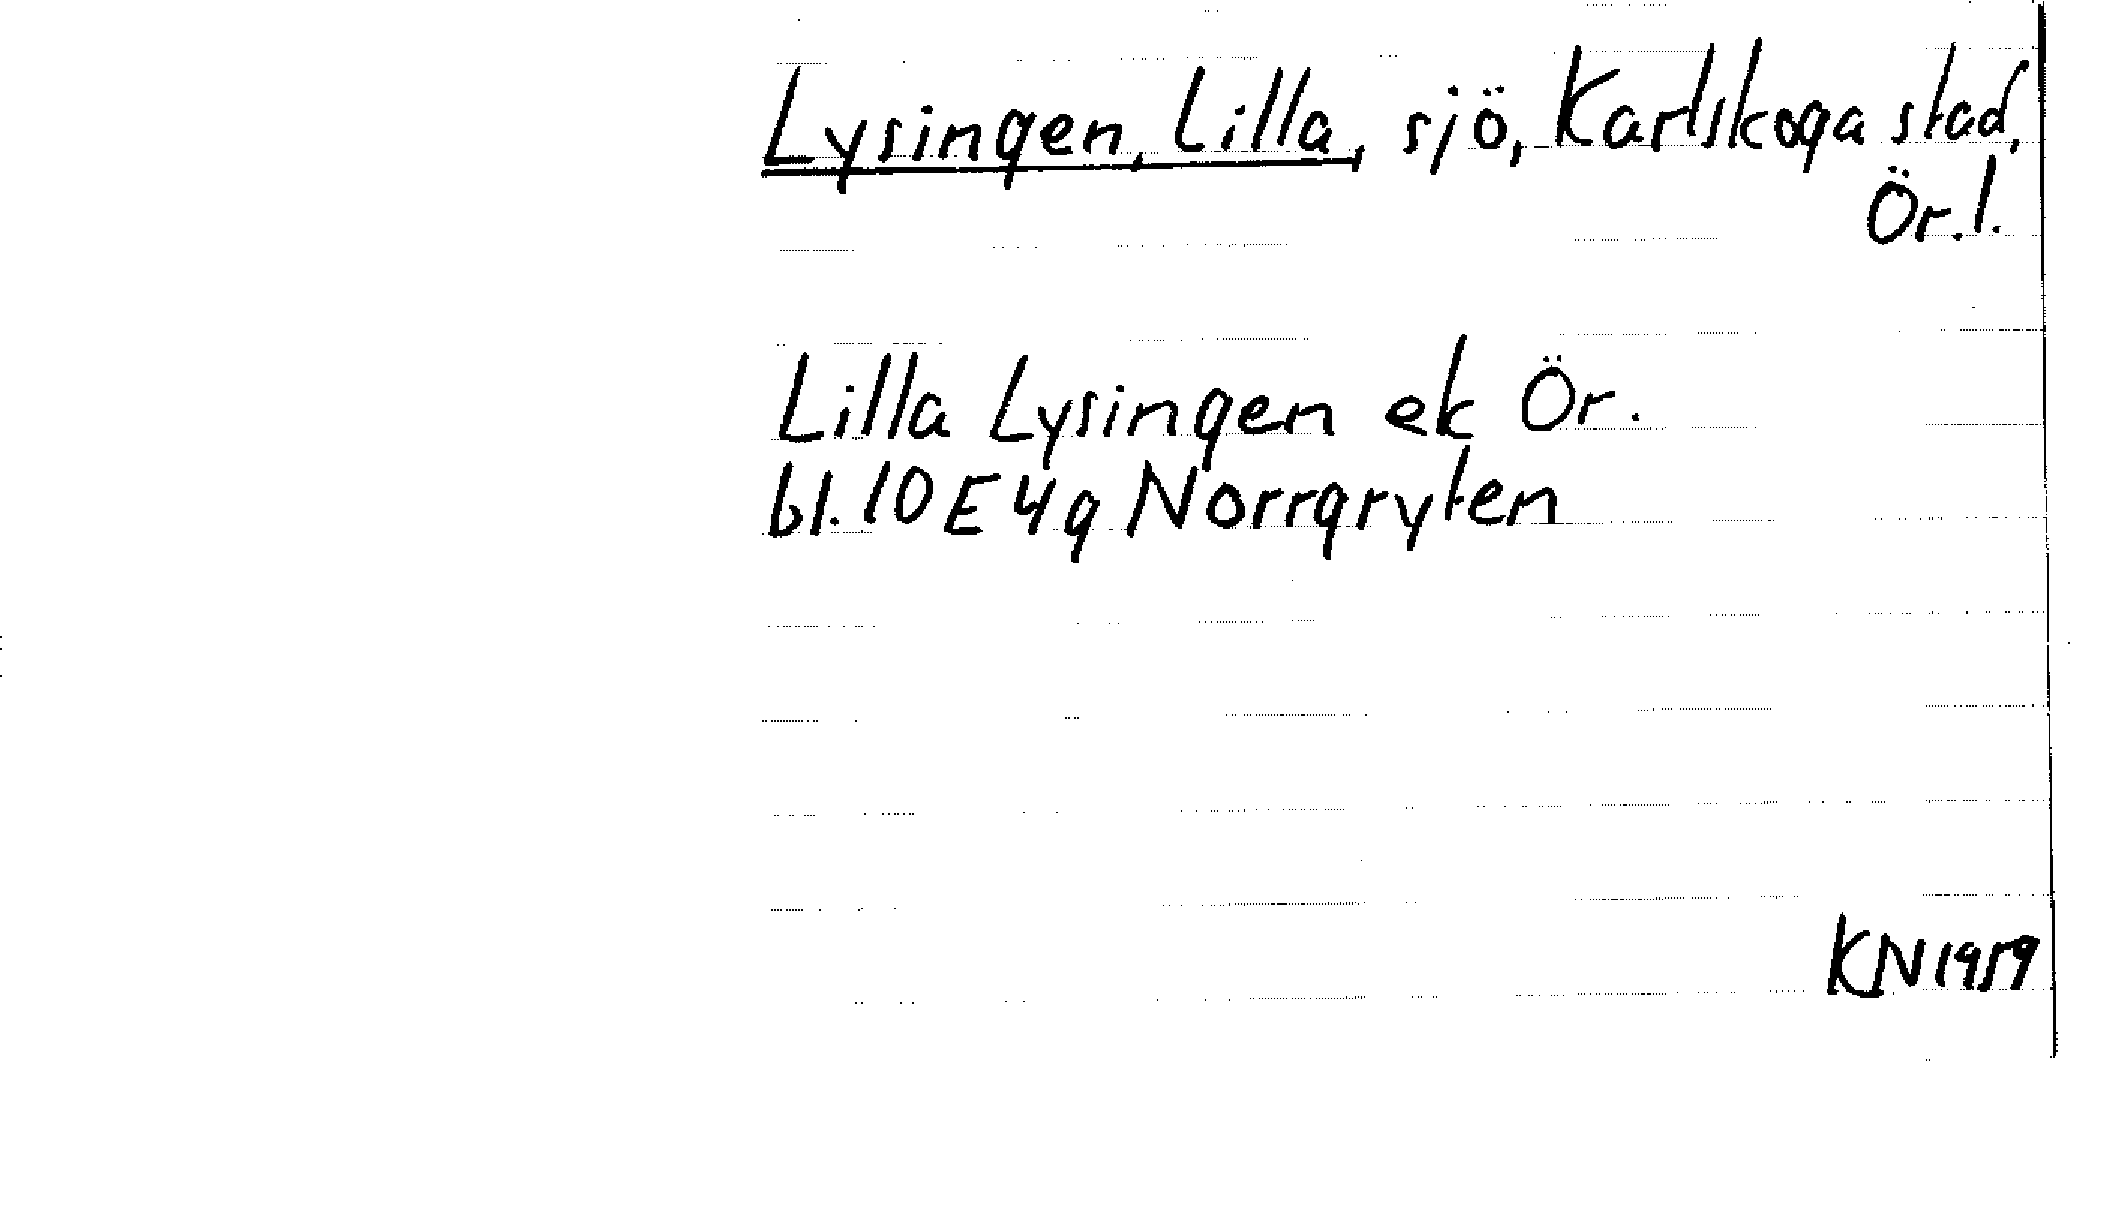 Lysingen, Lilla, sjö, Karlskoga stad,
Ör.l.
Lilla Lysingen ek Ör.
bl. 10 E 4g Norrgryten
KN 1959